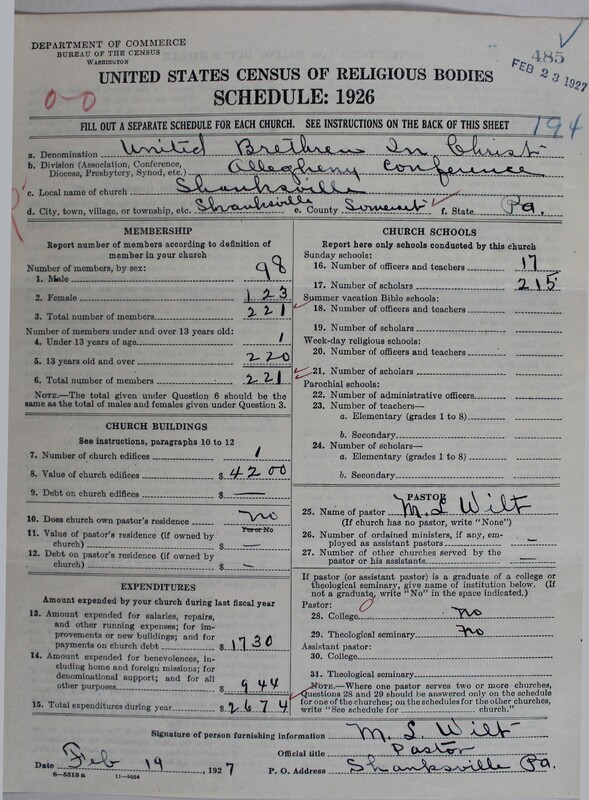 DEPARTMENT OF COMMERCE
BUREAU OF THE CENSUS
WASHINGTON
485
FEB 23 1927
UNITED STATES CENSUS OF RELIGIOUS BODIES
0-0
SCHEDULE: 1926
FILL OUT A SEPARATE SCHEDULE FOR EACH CHURCH. SEE INSTRUCTIONS ON THE BACK OF THIS SHEET
194
a. Denomination United Brethren In Christ
b. Division (Association, Conference, Diocese, Presbytery, Synod, etc.) Allegheny Conference
c. Local name of church Shanksville
d. City, town, village, or township, etc. Shanksville e. County Somerset f. State Pa.
MEMBERSHIP
Report number of members according to definition of
member in your church
Number of members, by sex:
1. Male 98
2. Female 123
3. Total number of members 221
Number of members under and over 13 years old:
4. Under 13 years of age 1
5. 13 years old and over 220
6. Total number of members 221
NOTE.—The total given under Question 6 should be
same as the total of males and females given under Question 3.
CHURCH BUILDINGS
See instructions, paragraphs 10 to 12
7. Number of church edifices 1
8. Value of church edifices $ 4200
9. Debt on church edifices $ —
10. Does church own pastor's residence no
Yes or No
11. Value of pastor's residence (if owned by
church) $ —
12. Debt on pastor's residence (if owned by
church) $ —
EXPENDITURES
Amount expended by your church during last fiscal year
13. Amount expended for salaries, repairs,
and other running expenses; for im-
provements or new buildings; and for
payments on church debt $ 1730
14. Amount expended for benevolences, in-
cluding home and foreign missions; for
denominational support; and for all
other purposes $ 944
15. Total expenditures during year $ 2674
CHURCH SCHOOLS
Report here only schools conducted by this church
Sunday schools:
16. Number of officers and teachers 17
17. Number of scholars 215
Summer vacation Bible schools:
18. Number of officers and teachers
19. Number of scholars
Week-day religious schools:
20. Number of officers and teachers
21. Number of scholars
Parochial schools:
22. Number of administrative officers
23. Number of teachers—
a. Elementary (grades 1 to 8)
b. Secondary
24. Number of scholars—
a. Elementary (grades 1 to 8)
b. Secondary
PASTOR
25. Name of pastor M. L. Wilt
(If church has no pastor, write "None")
26. Number of ordained ministers, if any, em-
ployed as assistant pastors —
27. Number of other churches served by the
pastor or his assistants —
If pastor (or assistant pastor) is a graduate of a college or
theological seminary, give name of institution below. (If
not a graduate, write "No" in the space indicated.)
Pastor:
28. College no
29. Theological seminary no
Assistant pastor:
30. College
31. Theological seminary
NOTE.—Where one pastor serves two or more churches,
Questions 28 and 29 should be answered only on the schedule
for one of the churches; on the schedules for the other churches,
write "See schedule for church."
Signature of person furnishing information M. L. Wilt
Official title Pastor
Date Feb 19, 1927 P. O. Address Shanksville Pa.
8—5518a 11—9084